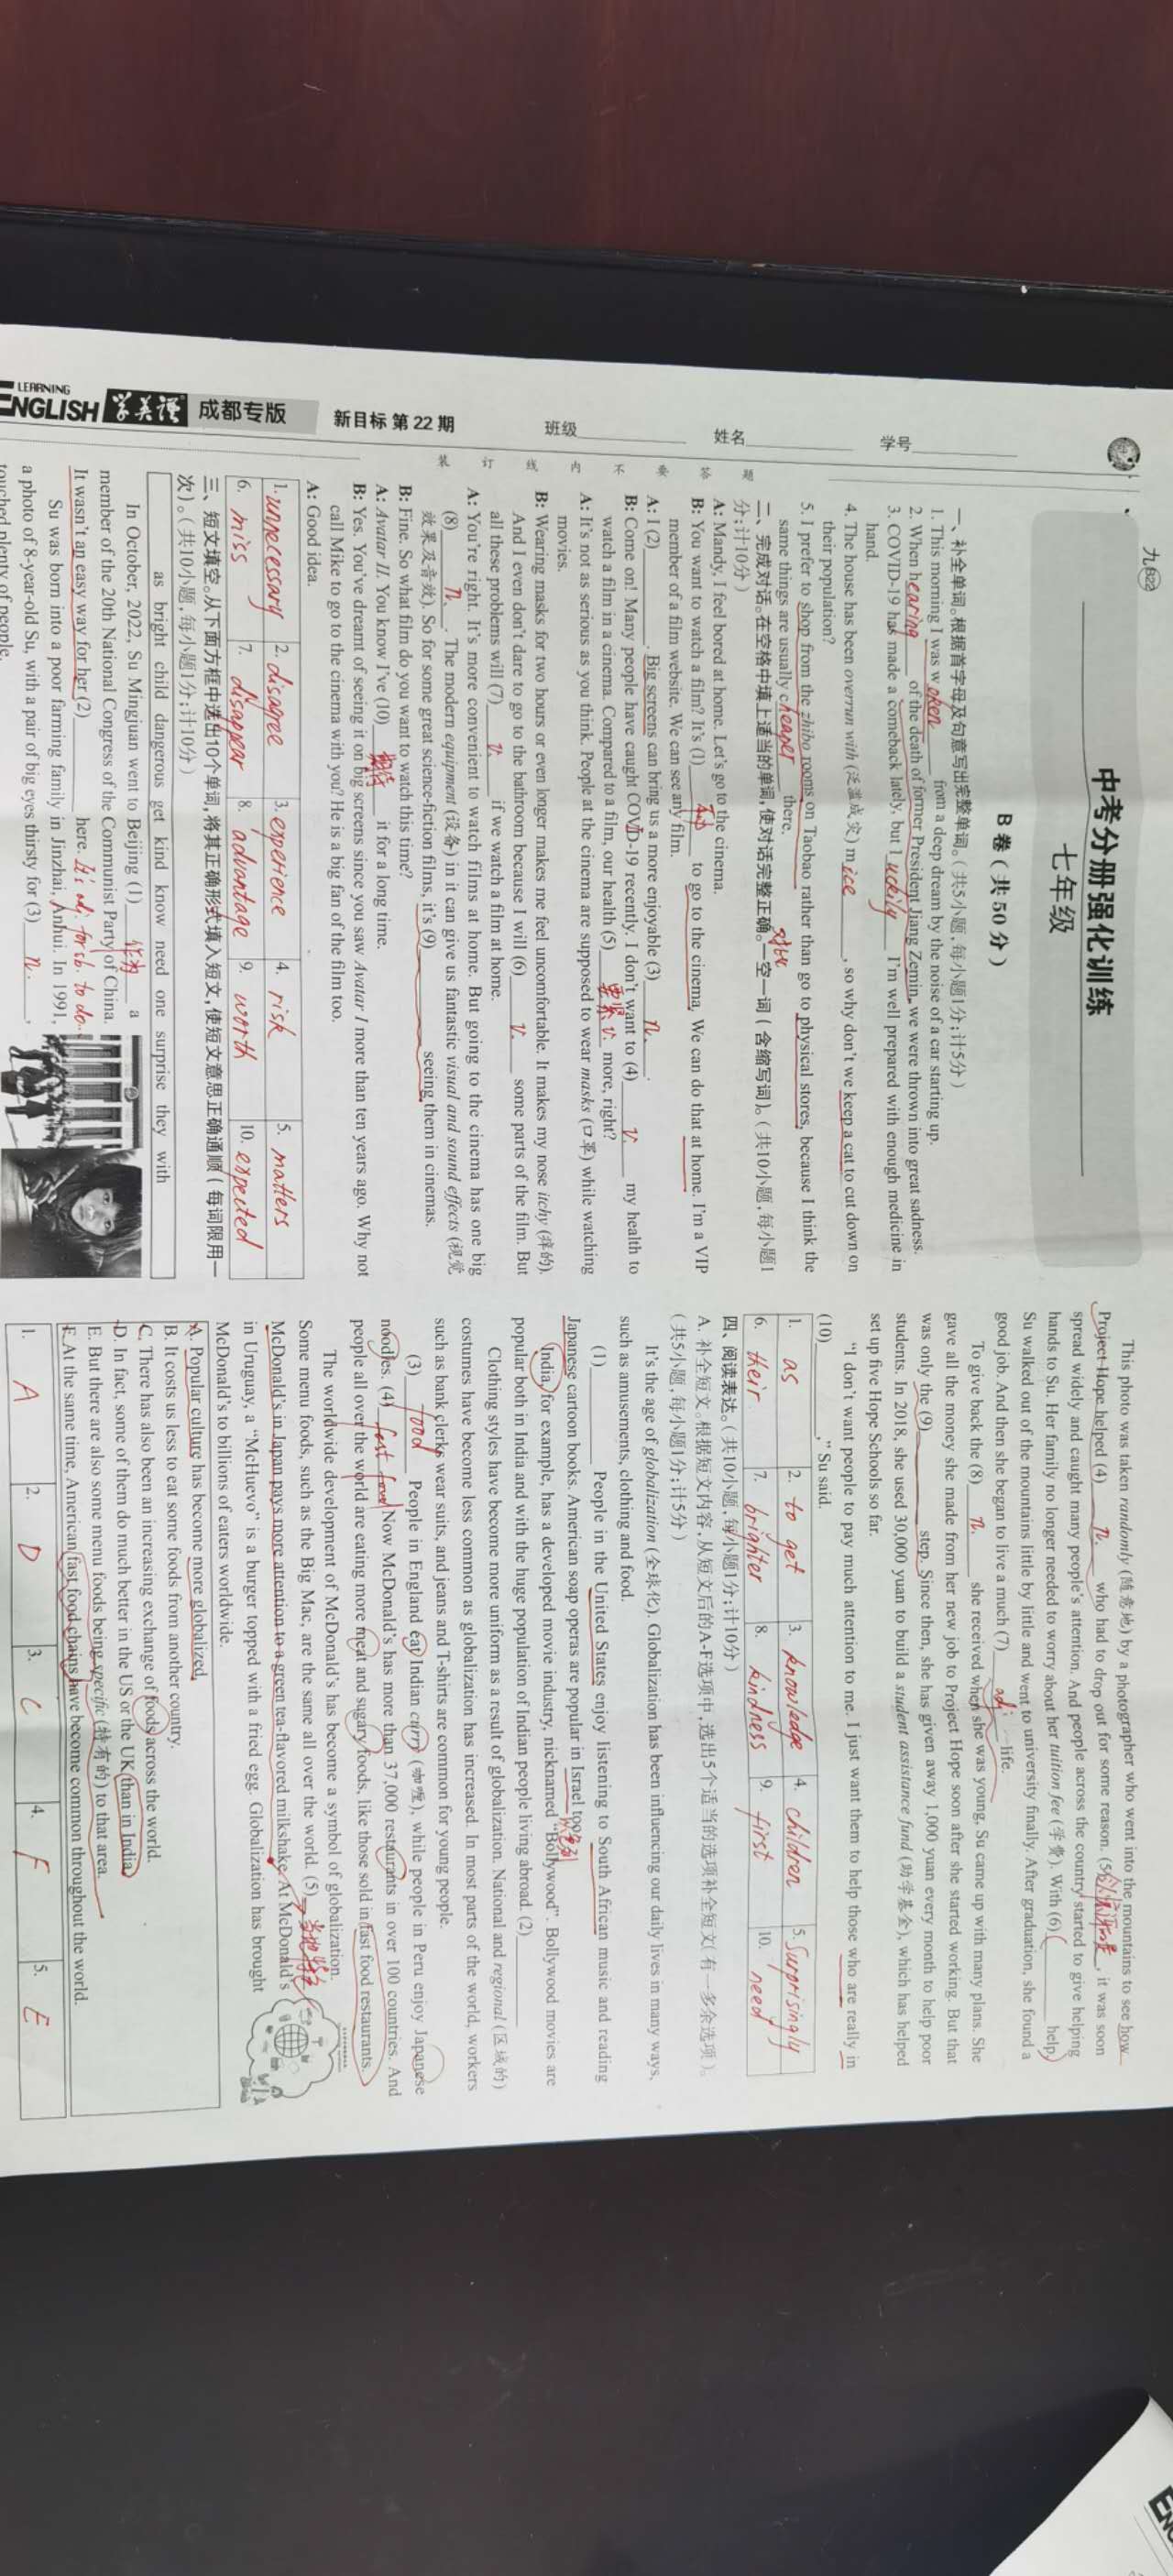 九822
中考分册强化训练
七年级
B 卷 ( 共 50 分 )
学号
姓名
班级
新目标 第 22 期
成都专版
学英语
LEARNING
ENGLISH
装 订 线 内 不 要 答 题
一、补全单词。根据首字母及句意写出完整单词。( 共5小题, 每小题1分; 计5分 )
1. This morning I was w oken from a deep dream by the noise of a car starting up.
2. When hearing of the death of former President Jiang Zemin, we were thrown into great sadness.
3. COVID-19 has made a comeback lately, but luckily I'm well prepared with enough medicine in
hand.
4. The house has been overrun with (泛滥成灾) m ice , so why don't we keep a cat to cut down on
their population?
5. I prefer to shop from the zhibo rooms on Taobao rather than go to physical stores, because I think the
same things are usually cheaper there.
二、完成对话。在空格中填上适当的单词, 使对话完整正确。一空一词 ( 含缩写词)。( 共10小题, 每小题1
分; 计10分 )
A: Mandy, I feel bored at home. Let's go to the cinema.
B: You want to watch a film? It's (1) to go to the cinema. We can do that at home. I'm a VIP
member of a film website. We can see any film.
A: I (2) . Big screens can bring us a more enjoyable (3) n. .
B: Come on! Many people have caught COVID-19 recently. I don't want to (4) v. my health to
watch a film in a cinema. Compared to a film, our health (5) 要紧 v. more, right?
A: It's not as serious as you think. People at the cinema are supposed to wear masks (口罩) while watching
movies.
B: Wearing masks for two hours or even longer makes me feel uncomfortable. It makes my nose itchy (痒的).
And I even don't dare to go to the bathroom because I will (6) v. some parts of the film. But
all these problems will (7) v. if we watch a film at home.
A: You're right. It's more convenient to watch films at home. But going to the cinema has one big
(8) n. . The modern equipment (设备) in it can give us fantastic visual and sound effects (视觉
效果及音效). So for some great science-fiction films, it's (9) seeing them in cinemas.
B: Fine. So what film do you want to watch this time?
A: Avatar II. You know I've (10) 期待 it for a long time.
B: Yes. You've dreamt of seeing it on big screens since you saw Avatar I more than ten years ago. Why not
call Mike to go to the cinema with you? He is a big fan of the film too.
A: Good idea.
1. unnecessary 2. disagree 3. experience 4. risk 5. matters
6. miss 7. disappear 8. advantage 9. worth 10. expected
三、短文填空。从下面方框中选出10个单词, 将其正确形式填入短文, 使短文意思正确通顺 ( 每词限用一
次)。( 共10小题, 每小题1分; 计10分 )
as bright child dangerous get kind know need one surprise they with
In October, 2022, Su Mingjuan went to Beijing (1) 作为 a
member of the 20th National Congress of the Communist Party of China.
It wasn't an easy way for her (2) here. It's adj. for sb. to do.
Su was born into a poor farming family in Jinzhai, Anhui. In 1991,
a photo of 8-year-old Su, with a pair of big eyes thirsty for (3) n. ,
touched plenty of people.
This photo was taken randomly (随意地) by a photographer who went into the mountains to see how
Project Hope helped (4) n. who had to drop out for some reason. (5) , it was soon
spread widely and caught many people's attention. And people across the country started to give helping
hands to Su. Her family no longer needed to worry about her tuition fee (学费). With (6) help,
Su walked out of the mountains little by little and went to university finally. After graduation, she found a
good job. And then she began to live a much (7) adj. life.
To give back the (8) n. she received when she was young, Su came up with many plans. She
gave all the money she made from her new job to Project Hope soon after she started working. But that
was only the (9) step. Since then, she has given away 1,000 yuan every month to help poor
students. In 2018, she used 30,000 yuan to build a student assistance fund (助学基金), which has helped
set up five Hope Schools so far.
"I don't want people to pay much attention to me. I just want them to help those who are really in
(10) ," Su said.
1. as 2. to get 3. knowledge 4. children 5. Surprisingly
6. their 7. brighter 8. kindness 9. first 10. need
四、阅读表达。( 共10小题, 每小题1分; 计10分 )
A. 补全短文。根据短文内容, 从短文后的A-F选项中, 选出5个适当的选项补全短文( 有一多余选项 )。
( 共5小题, 每小题1分; 计5分 )
It's the age of globalization (全球化). Globalization has been influencing our daily lives in many ways,
such as amusements, clothing and food.
(1) People in the United States enjoy listening to South African music and reading
Japanese cartoon books. American soap operas are popular in Israel too.
India, for example, has a developed movie industry, nicknamed "Bollywood". Bollywood movies are
popular both in India and with the huge population of Indian people living abroad. (2)
Clothing styles have become more uniform as a result of globalization. National and regional (区域的)
costumes have become less common as globalization has increased. In most parts of the world, workers
such as bank clerks wear suits, and jeans and T-shirts are common for young people.
(3) food People in England eat Indian curry (咖喱), while people in Peru enjoy Japanese
noodles. (4) fast food Now McDonald's has more than 37,000 restaurants in over 100 countries. And
people all over the world are eating more meat and sugary foods, like those sold in fast food restaurants.
The worldwide development of McDonald's has become a symbol of globalization.
Some menu foods, such as the Big Mac, are the same all over the world. (5)
McDonald's in Japan pays more attention to a green tea-flavored milkshake. At McDonald's
in Uruguay, a "McHuevo" is a burger topped with a fried egg. Globalization has brought
McDonald's to billions of eaters worldwide.
A. Popular culture has become more globalized.
B. It costs us less to eat some foods from another country.
C. There has also been an increasing exchange of foods across the world.
D. In fact, some of them do much better in the US or the UK than in India.
E. But there are also some menu foods being specific (特有的) to that area.
F. At the same time, American fast food chains have become common throughout the world.
1. A 2. D 3. C 4. F 5. E